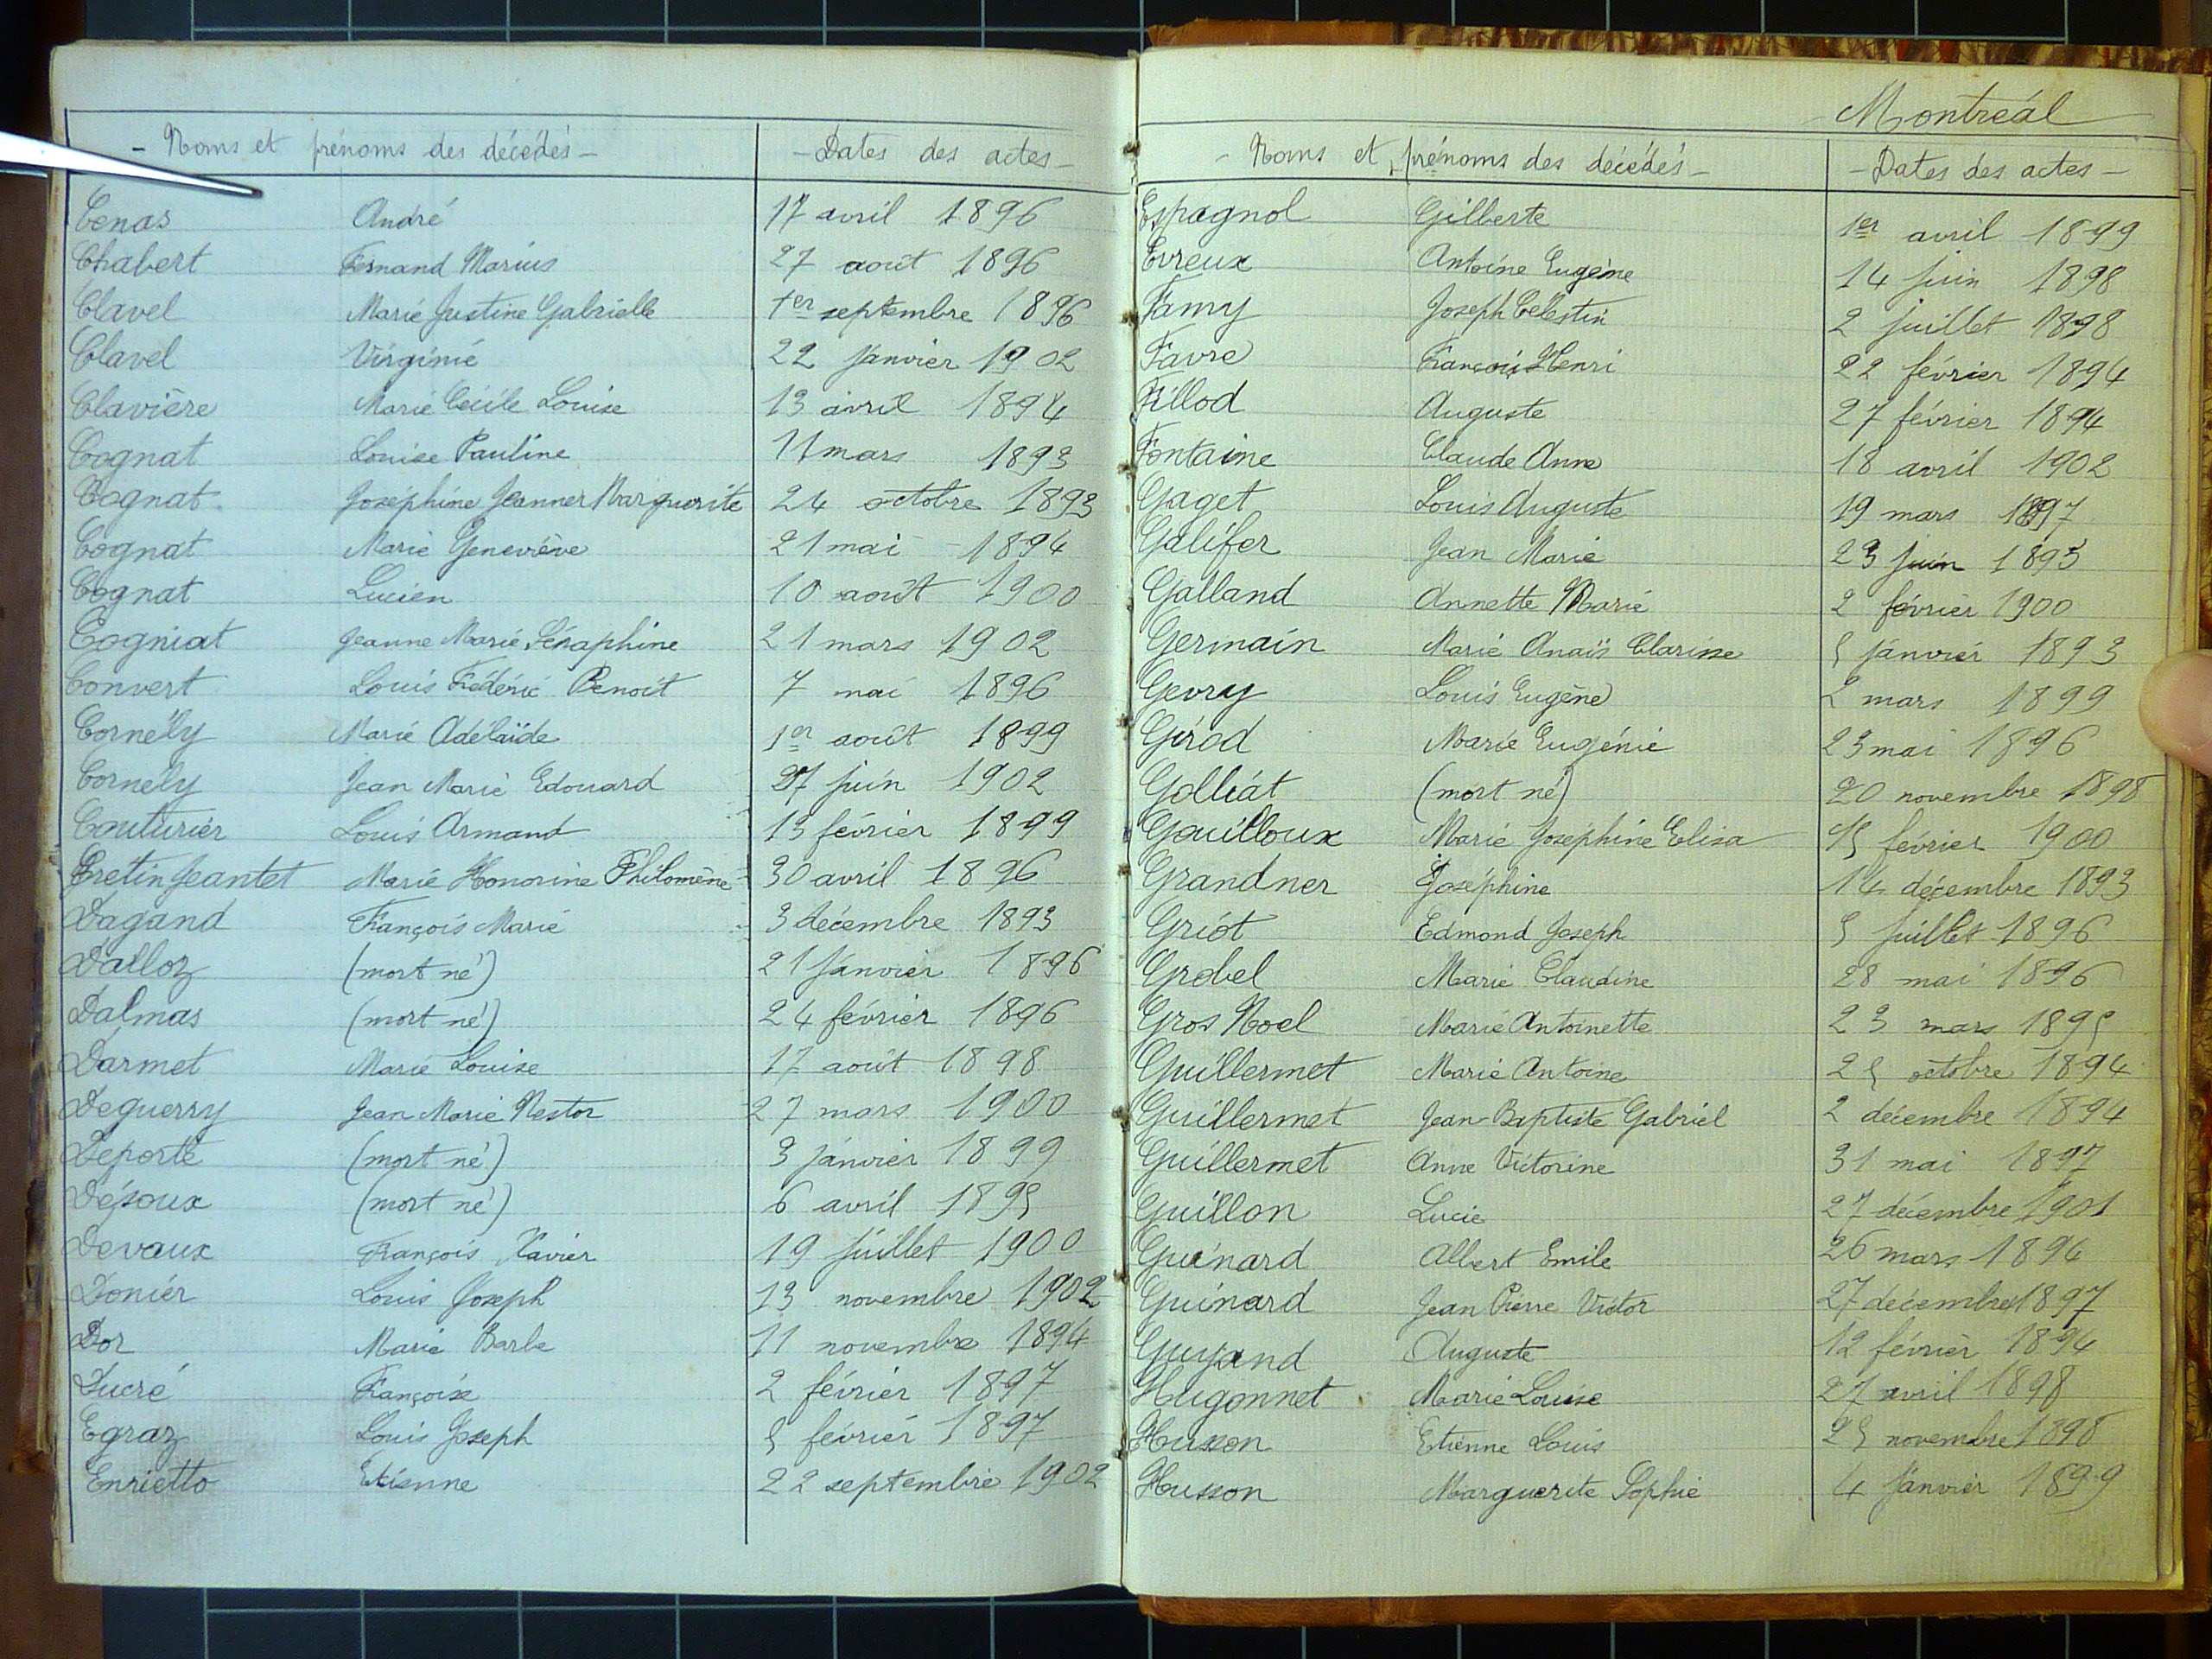 - Noms et prénoms des décédés - - Dates des actes -
Cenas André 17 avril 1896
Chabert Fernand Marius 27 août 1896
Clavel Marie Justine Gabrielle 1er septembre 1896
Clavel Virginie 22 janvier 1902
Clavière Marie Cécile Louise 13 avril 1894
Cognat Louise Pauline 11 mars 1893
Cognat Joséphine Jeanne Marguerite 24 octobre 1893
Cognat Marie Geneviève 21 mai 1894
Cognat Lucien 10 août 1900
Cogniat Jeanne Marie Séraphine 21 mars 1902
Convert Louis Frédéric Benoit 7 mai 1896
Cornély Marie Adélaïde 1er août 1899
Cornély Jean Marie Edouard 27 juin 1902
Couturier Louis Armand 13 février 1899
Cretin Jeantet Marie Honorine Philomène 30 avril 1896
Dagand François Marie 3 décembre 1893
Dalloz (mort né) 21 janvier 1896
Dalmas (mort né) 24 février 1896
Darmet Marie Louise 17 août 1898
Deguerry Jean Marie Nestor 27 mars 1900
Deporte (mort né) 3 janvier 1899
Déjoux (mort né) 6 avril 1895
Devaux François Xavier 19 juillet 1900
Donier Louis Joseph 13 novembre 1902
Dor Marie Barbe 11 novembre 1894
Ducré Françoise 2 février 1897
Egraz Louis Joseph 5 février 1897
Enrietto Etienne 22 septembre 1902
Montréal
- Noms et prénoms des décédés - - Dates des actes -
Espagnol Gilberte 1er avril 1899
Evreux Antoine Eugène 14 juin 1898
Famy Joseph Célestin 2 juillet 1898
Favre François Henri 22 février 1894
Fillod Auguste 27 février 1894
Fontaine Claude Anne 18 avril 1902
Gaget Louis Auguste 19 mars 1897
Galifer Jean Marie 23 juin 1895
Galland Annette Marie 2 février 1900
Germain Marie Anaïs Clarisse 5 janvier 1893
Gevry Louis Eugène 2 mars 1899
Girod Marie Eugénie 23 mai 1896
Golliat (mort né) 20 novembre 1898
Gouilloux Marie Joséphine Elisa 15 février 1900
Grandner Joséphine 14 décembre 1893
Griot Edmond Joseph 5 juillet 1896
Grobel Marie Claudine 28 mai 1896
Gros Noel Marie Antoinette 23 mars 1895
Guillermet Marie Antoine 25 octobre 1894
Guillermet Jean-Baptiste Gabriel 2 décembre 1894
Guillermet Anne Victorine 31 mai 1897
Guillon Lucie 27 décembre 1901
Guinard Albert Emile 26 mars 1894
Guinard Jean Pierre Victor 27 décembre 1897
Guyand Auguste 12 février 1894
Hugonnet Marie Louise 27 avril 1898
Husson Etienne Louis 25 novembre 1898
Husson Marguerite Sophie 4 janvier 1899